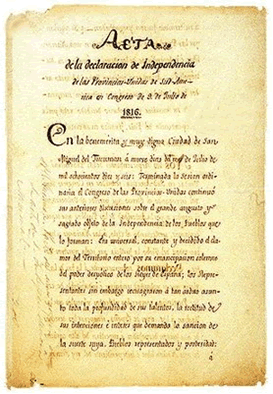 ACTA
de la declaracion de Independencia
de las Provincias-Unidas de Sud Ame-
rica en Congreso de 9. de Julio de
1816.
En la benemerita y muy digna Ciudad de San
Miguel del Tucuman á nueve dias del mes de Julio de
mil ochocientos diez y seis: Terminada la sesion ordi-
naria el Congreso de las Provincias-Unidas continuó
sus anteriores discusiones sobre el grande augusto y
sagrado objeto de la Independencia de los Pueblos que
lo forman: Era universal, constante y decidido el cla-
mor del Territorio entero por su emancipacion solemne
del poder despótico de los Reyes de España; los Repre-
sentantes sin embargo consagraron á tan arduo asun-
to toda la profundidad de sus talentos, la rectitud de
sus intenciones é interes que demanda la sancion de
la suerte suya, Pueblos representados y posteridad:
á